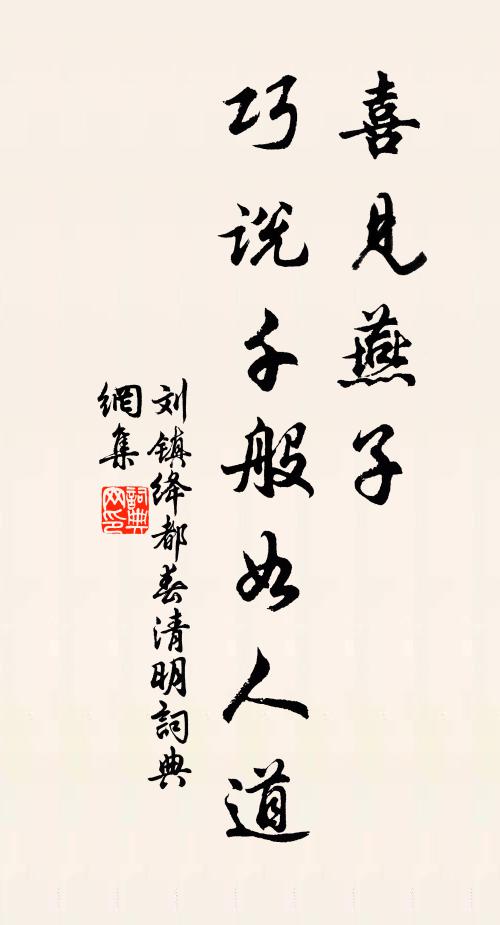 喜见燕子
巧说千般如人道
刘镇绛都春清明詞典
網集
詞典
网印